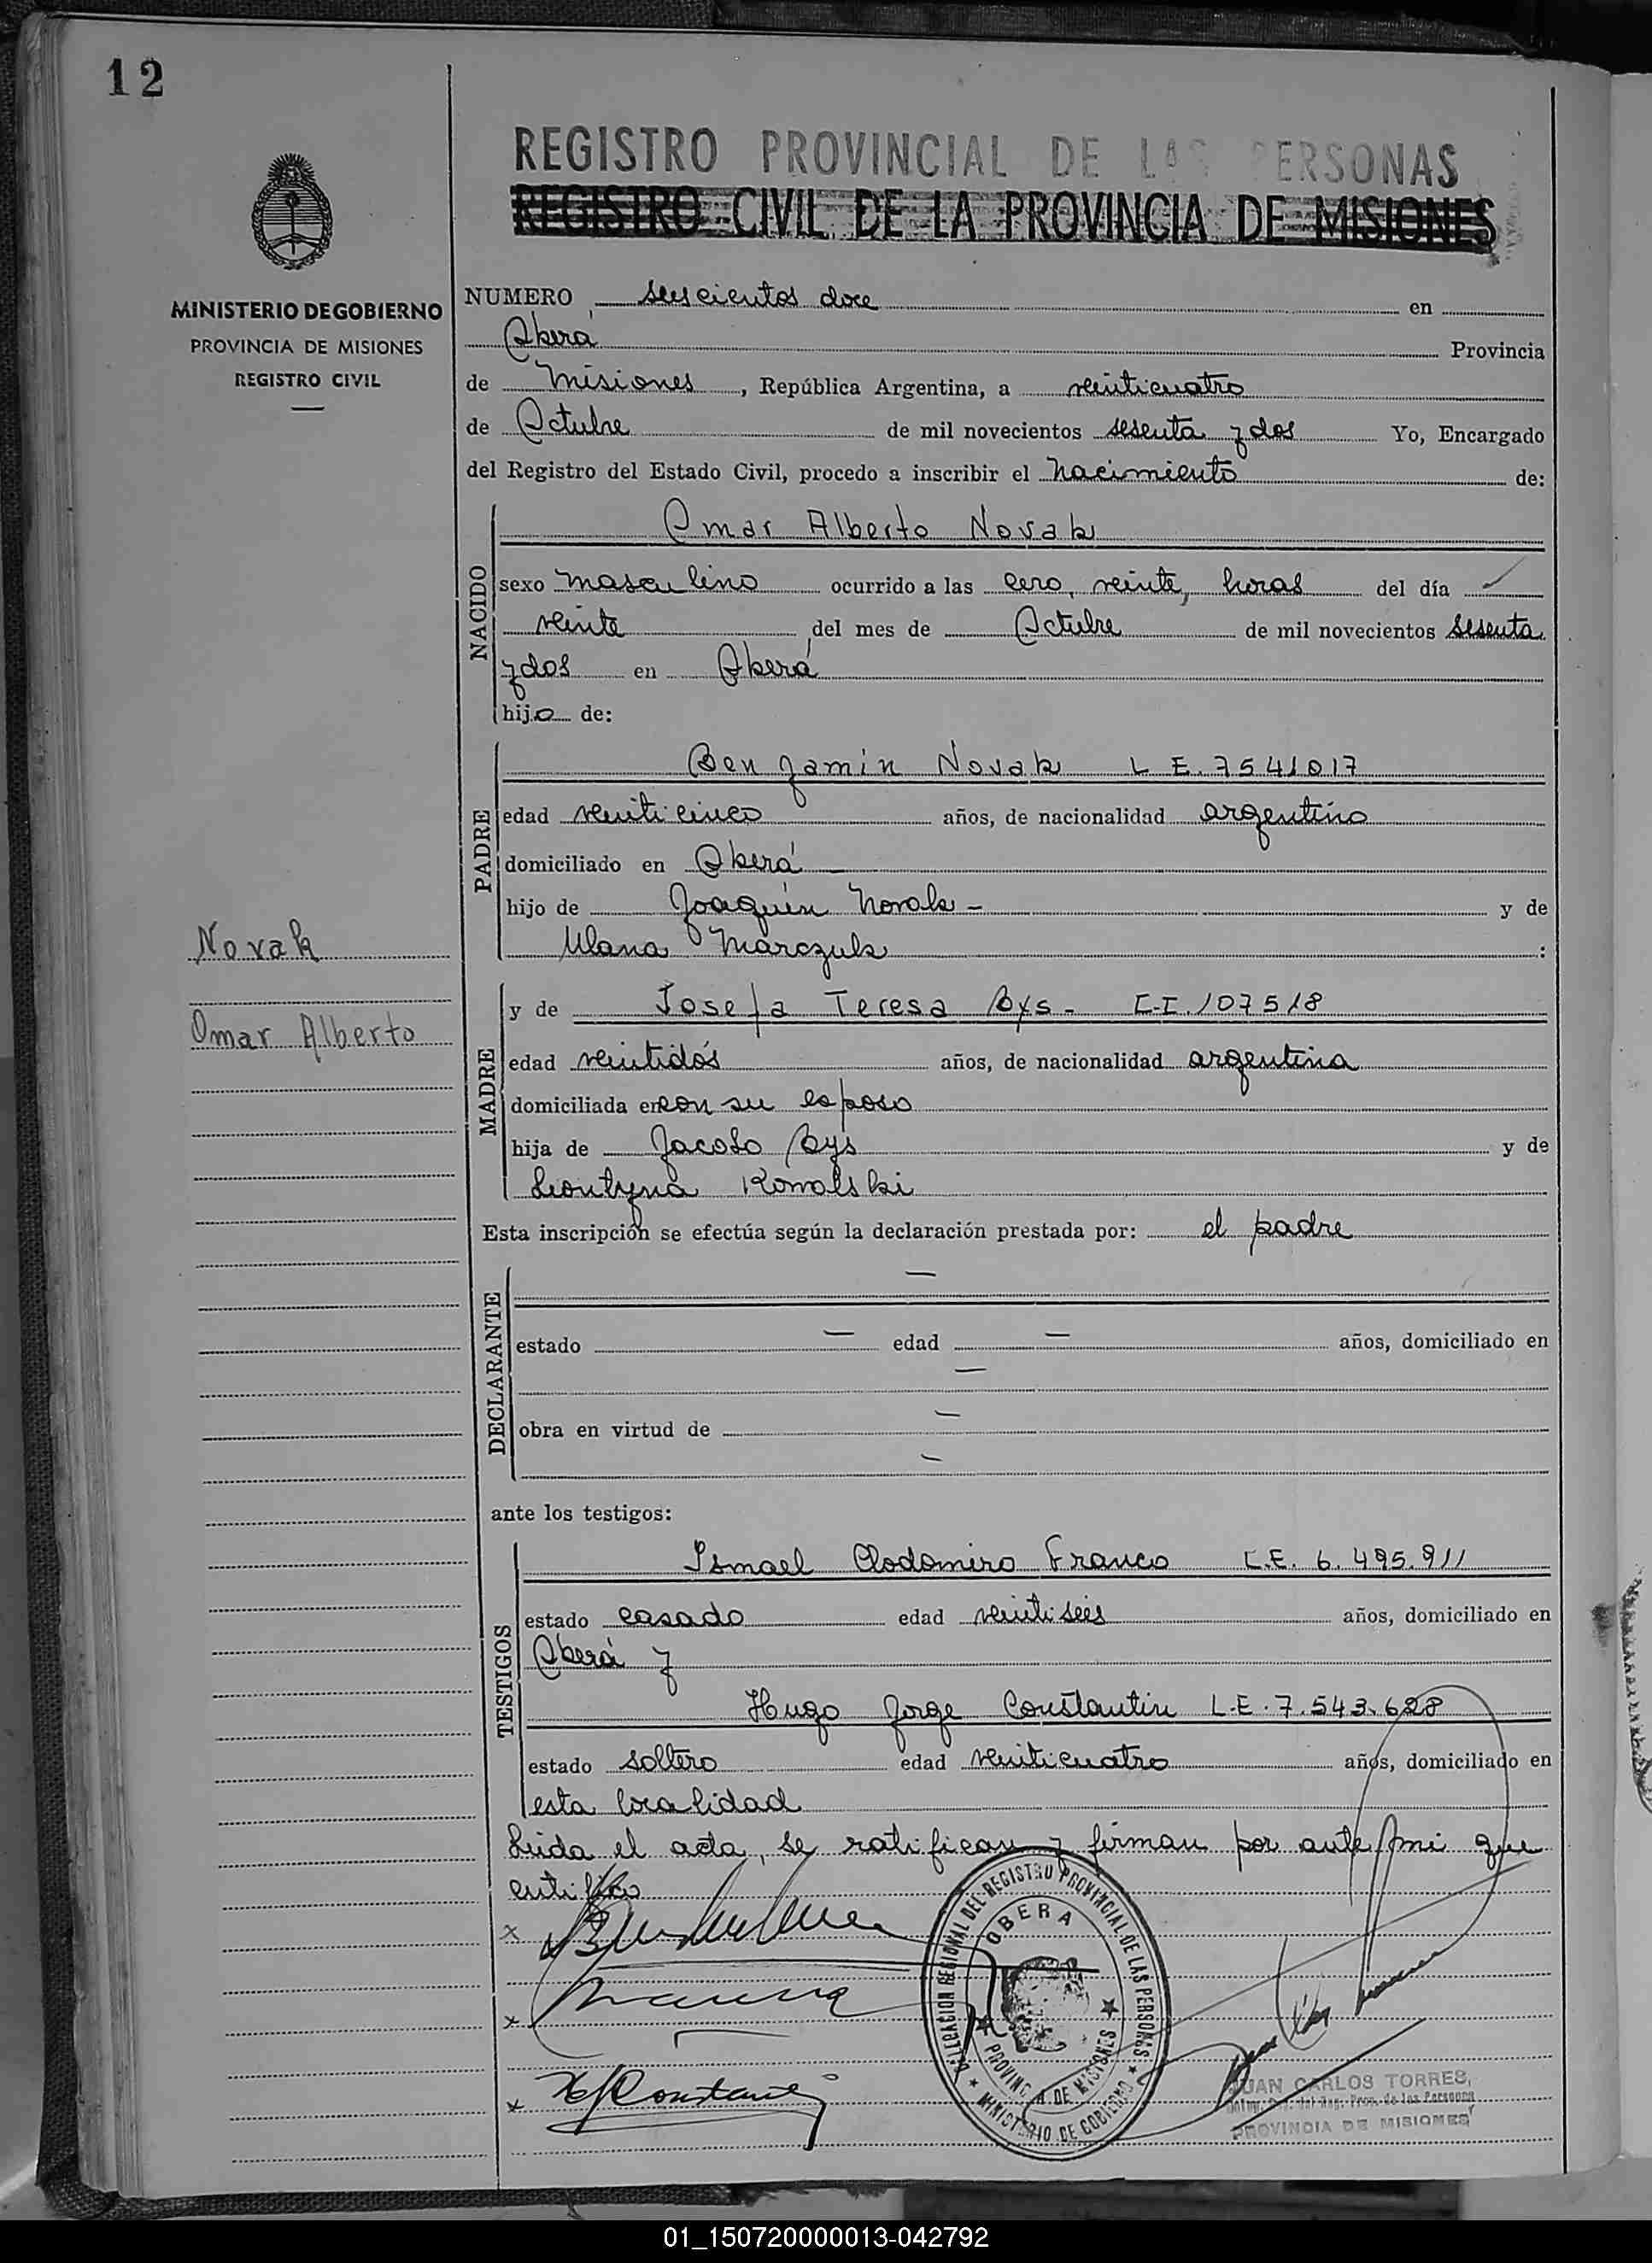 12
REGISTRO PROVINCIAL DE LAS PERSONAS
REGISTRO CIVIL DE LA PROVINCIA DE MISIONES
MINISTERIO DE GOBIERNO
PROVINCIA DE MISIONES
REGISTRO CIVIL
NUMERO seiscientos doce en
Oberá Provincia
de Misiones, República Argentina, a veinticuatro
de Octubre de mil novecientos sesenta y dos Yo, Encargado
del Registro del Estado Civil, procedo a inscribir el nacimiento de:
NACIDO
Omar Alberto Novak
sexo masculino ocurrido a las cero, veinte, horas del día
veinte del mes de Octubre de mil novecientos sesenta
y dos en Oberá
hijo de:
PADRE
Benjamin Novak L E. 7541017
edad veinticinco años, de nacionalidad argentino
domiciliado en Oberá
hijo de Joaquín Novak - y de
Ulana Marczuk :
Novak
Omar Alberto
MADRE
y de Josefa Teresa Bys - C.I. 107518
edad veintidós años, de nacionalidad argentina
domiciliada en con su esposo
hija de Jacobo Bys y de
Leontyna Kowalski
Esta inscripción se efectúa según la declaración prestada por: el padre
DECLARANTE
—
estado — edad — años, domiciliado en
—
obra en virtud de —
—
ante los testigos:
TESTIGOS
Ismael Clodomiro Franco L.E. 6.495.911
estado casado edad veintiseis años, domiciliado en
Oberá y
Hugo Jorge Constantin L.E. 7.543.628
estado soltero edad veinticuatro años, domiciliado en
esta localidad
Leida el acta, se ratifican y firman por ante mi que
certifico
x
x
x
DELEGACION REGIONAL DEL REGISTRO PROVINCIAL DE LAS PERSONAS
OBERA
PROVINCIA DE MISIONES
MINISTERIO DE GOBIERNO
JUAN CARLOS TORRES,
PROVINCIA DE MISIONES
01_150720000013-042792